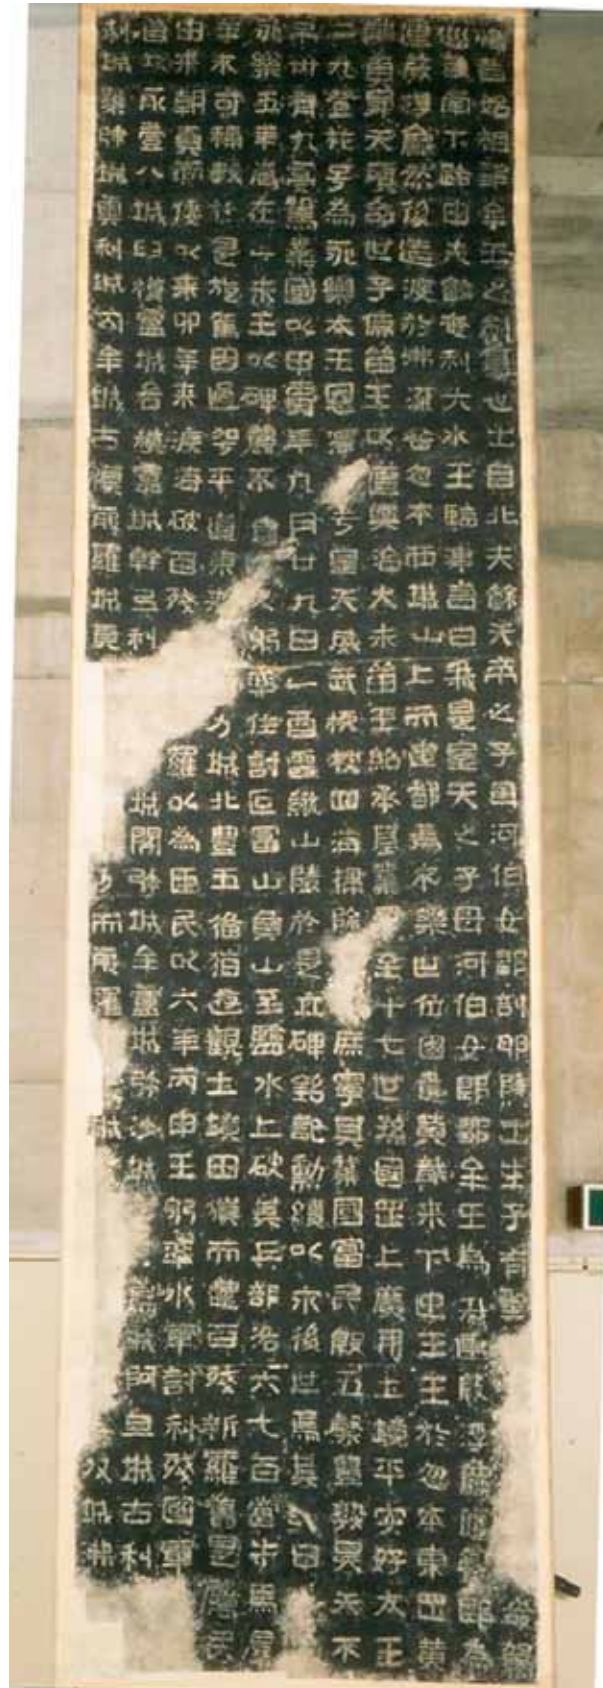 惟昔始祖鄒牟王之創基也出自北夫餘天帝之子母河伯女郎剖卵降出生子有聖命駕
巡車南下路由夫餘奄利大水王臨津言曰我是皇天之子母河伯女郎鄒牟王爲我連葭浮龜應聲即爲
連葭浮龜然後造渡於沸流谷忽本西城山上而建都焉永樂世位因遣黃龍來下迎王王於忽本東罡黃
龍負昇天顧命世子儒留王以道興治大朱留王紹承基業至十七世孫國罡上廣開土境平安好太王
二九登祚号爲永樂太王恩澤于皇天威武振被四海掃除庶寧其業國富民殷五穀豐熟昊天不
弔卅有九寔駕棄國以甲寅年九月廿九日乙酉遷就山陵於是立碑銘記勳績以永後世焉其詞曰
永樂五年歲在乙未王以碑麗不躬率住討叵富山負山至鹽水上破其丘部洛六七百當牛馬羣
羊不可稱數於是旋駕因過平道東來力城北豊五備猶遊觀土境田獵而還百殘新羅舊是屬民
由來朝貢而倭以來卯年來渡海破百殘羅以爲臣民以六年丙申王躬率水軍討利殘國軍
首攻取壹八城臼模盧城各模盧城幹弖利城閣彌城牟盧城彌沙城蔦城阿旦城古利
利城雜彌城奧利城勾牟城古模耶羅城頁分而耶羅城奴城沸